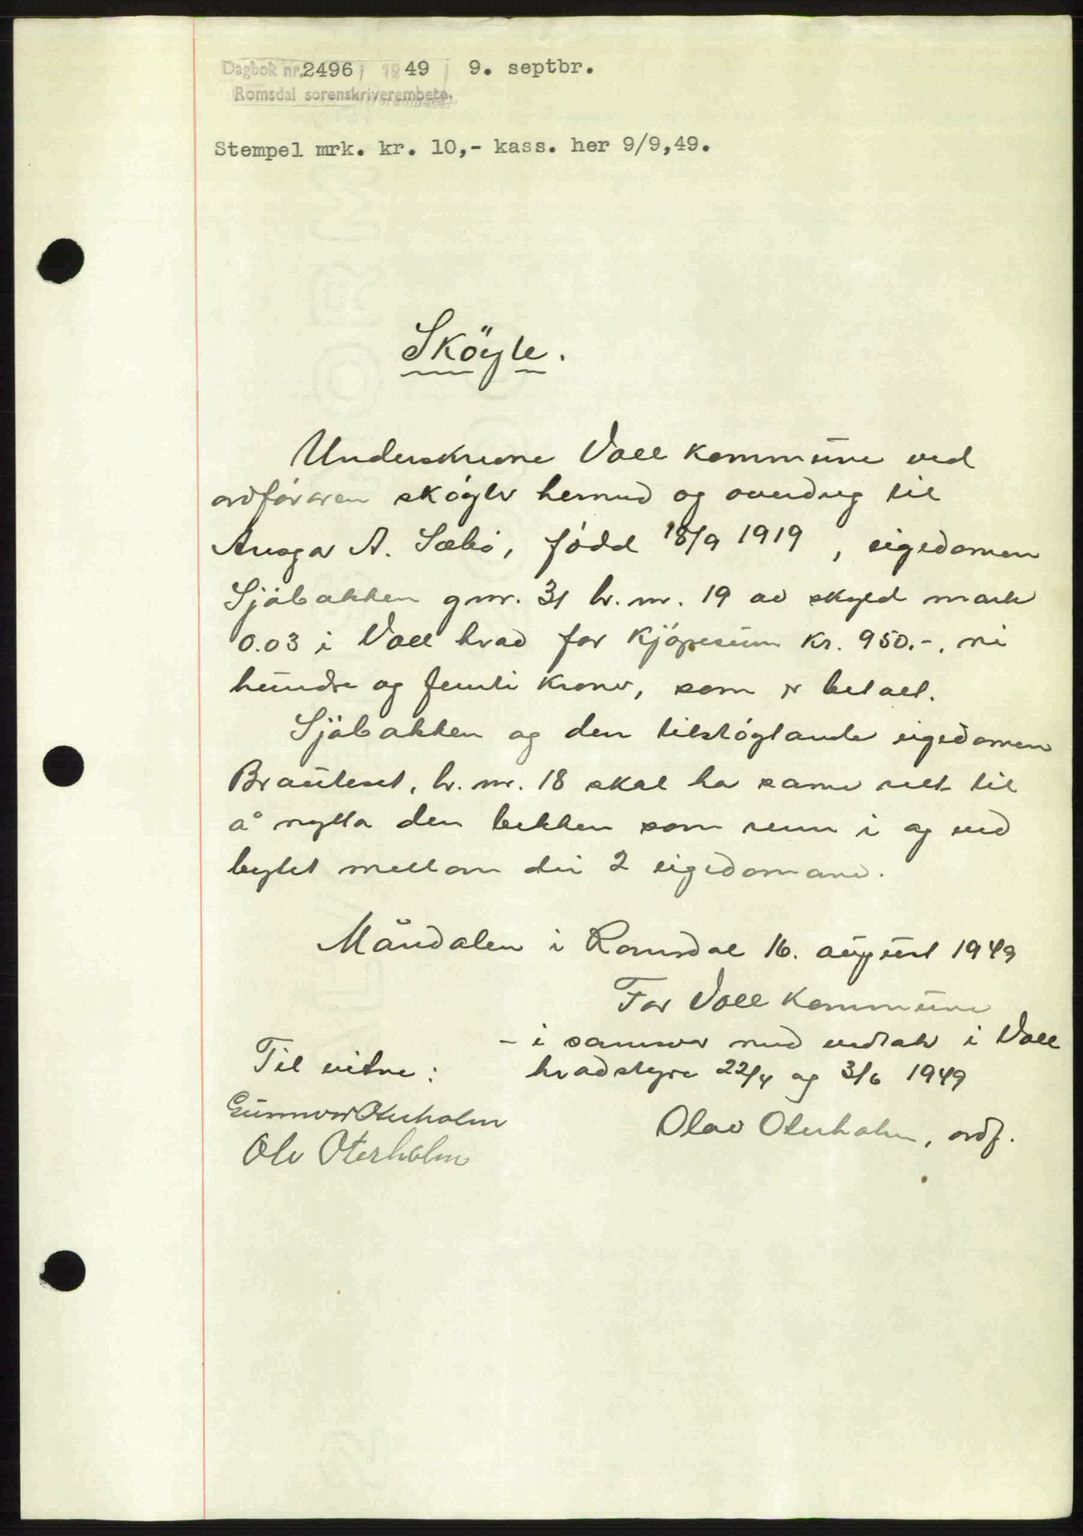 Dagbok nr. 2496 / 1949 9. septbr.
Romsdal sorenskriverembete.
Stempel mrk. kr. 10,- kass. her 9/9,49.
Sköyte.
Underskrivne Voll kommune ved
ordföraren sköyter hermed og overdreg til
A. Sæbö, född 18/9 1919, eigedomen
Sjöbakken gnr. 31 br. nr. 19 av skyld mark
0.03 i Voll hrad for kjöpesum kr. 950.-, ni
hundre og femti kroner, som er betalt.
Sjöbakken og den tilstöytande eigedomen
Brauteset, br. nr. 18 skal ha same rett til
å nytta den bekken som renn i og ved
bytet mellom dei 2 eigedomane.
Måndalen i Romsdal 16. august 1949
For Voll kommune
- i samsvar med vedtak i Voll
Til vitne: hradstyre 22/4 og 3/6 1949
Gunnvor Oterholm
Olav Oterholm, ordf.
Ole Oterholm